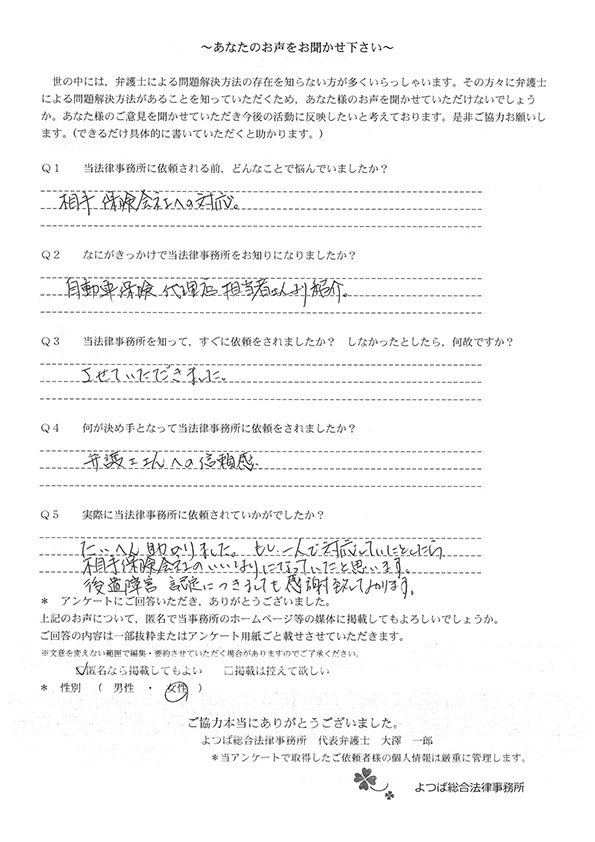 ～あなたのお声をお聞かせ下さい～
世の中には，弁護士による問題解決方法の存在を知らない方が多くいらっしゃいます。その方々に弁護士
による問題解決方法があることを知っていただくため，あなた様のお声を聞かせていただけないでしょう
か。あなた様のご意見を聞かせていただき今後の活動に反映したいと考えております。是非ご協力お願いしま
す。(できるだけ具体的に書いていただくと助かります。)
Ｑ１　当法律事務所に依頼される前，どんなことで悩んでいましたか？
相手保険会社への対応。
Ｑ２　なにがきっかけで当法律事務所をお知りになりましたか？
自動車保険代理店担当者さんより紹介。
Ｑ３　当法律事務所を知って，すぐに依頼をされましたか？　しなかったとしたら，何故ですか？
させていただきました。
Ｑ４　何が決め手となって当法律事務所に依頼をされましたか？
弁護士さんへの信頼感
Ｑ５　実際に当法律事務所に依頼されていかがでしたか？
たいへん助かりました。もし、一人で対応していたとしたら
相手保険会社のいいなりになっていたと思います。
後遺障害認定につきましても感謝致しております。
＊　アンケートにご回答いただき，ありがとうございました。
上記のお声について，匿名で当事務所のホームページ等の媒体に掲載してもよろしいでしょうか。
ご回答の内容は一部抜粋またはアンケート用紙ごと載せさせていただきます。
※文意を変えない範囲で編集・要約させていただく場合がありますのでご了承ください。
☑匿名なら掲載してもよい　□掲載は控えて欲しい
＊　性別　（　男性　・　女性　）
ご協力本当にありがとうございました。
よつば総合法律事務所　代表弁護士　大澤　一郎
＊当アンケートで取得したご依頼者様の個人情報は厳重に管理します。
よつば総合法律事務所